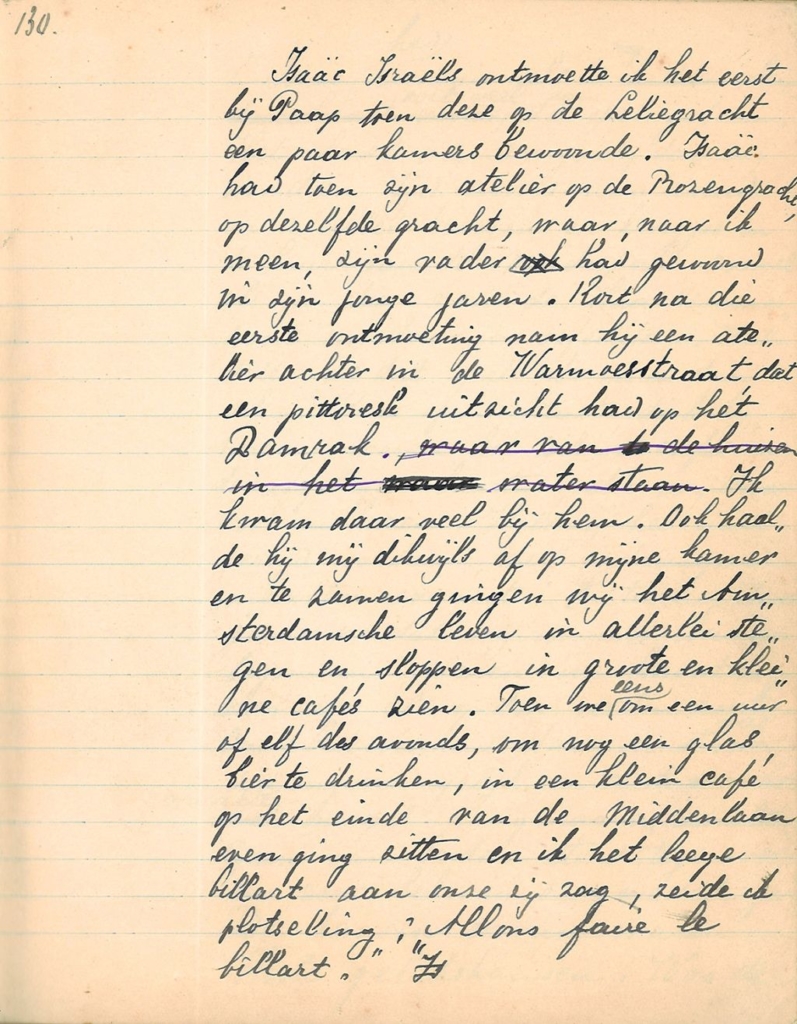 130.
Isaäc Israëls ontmoette ik het eerst
bij Paap toen deze op de Leliegracht
een paar kamers bewoonde. Isaäc
had toen zijn atelier op de Rozengracht,
op dezelfde gracht, waar, naar ik
meen, zijn vader ook had gewoond
in zijn jonge jaren. Kort na die
eerste ontmoeting nam hij een ate„
lier achter in de Warmoesstraat, dat
een pittoresk uitzicht had op het
Damrak., waar van de huizen
in het water staan. Ik
kwam daar veel bij hem. Ook haal„
de hij mij dikwijls af op mijne kamer
en te zamen gingen wij het Am„
sterdamsche leven in allerlei ste„
gen en sloppen in groote en klei„
ne café's zien. Toen we eens om een uur
of elf des avonds, om nog een glas
bier te drinken, in een klein café
op het einde van de Middenlaan
even ging zitten en ik het leege
billart aan onze zij zag, zeide ik
plotseling: „Allons faire le
billart." „Is